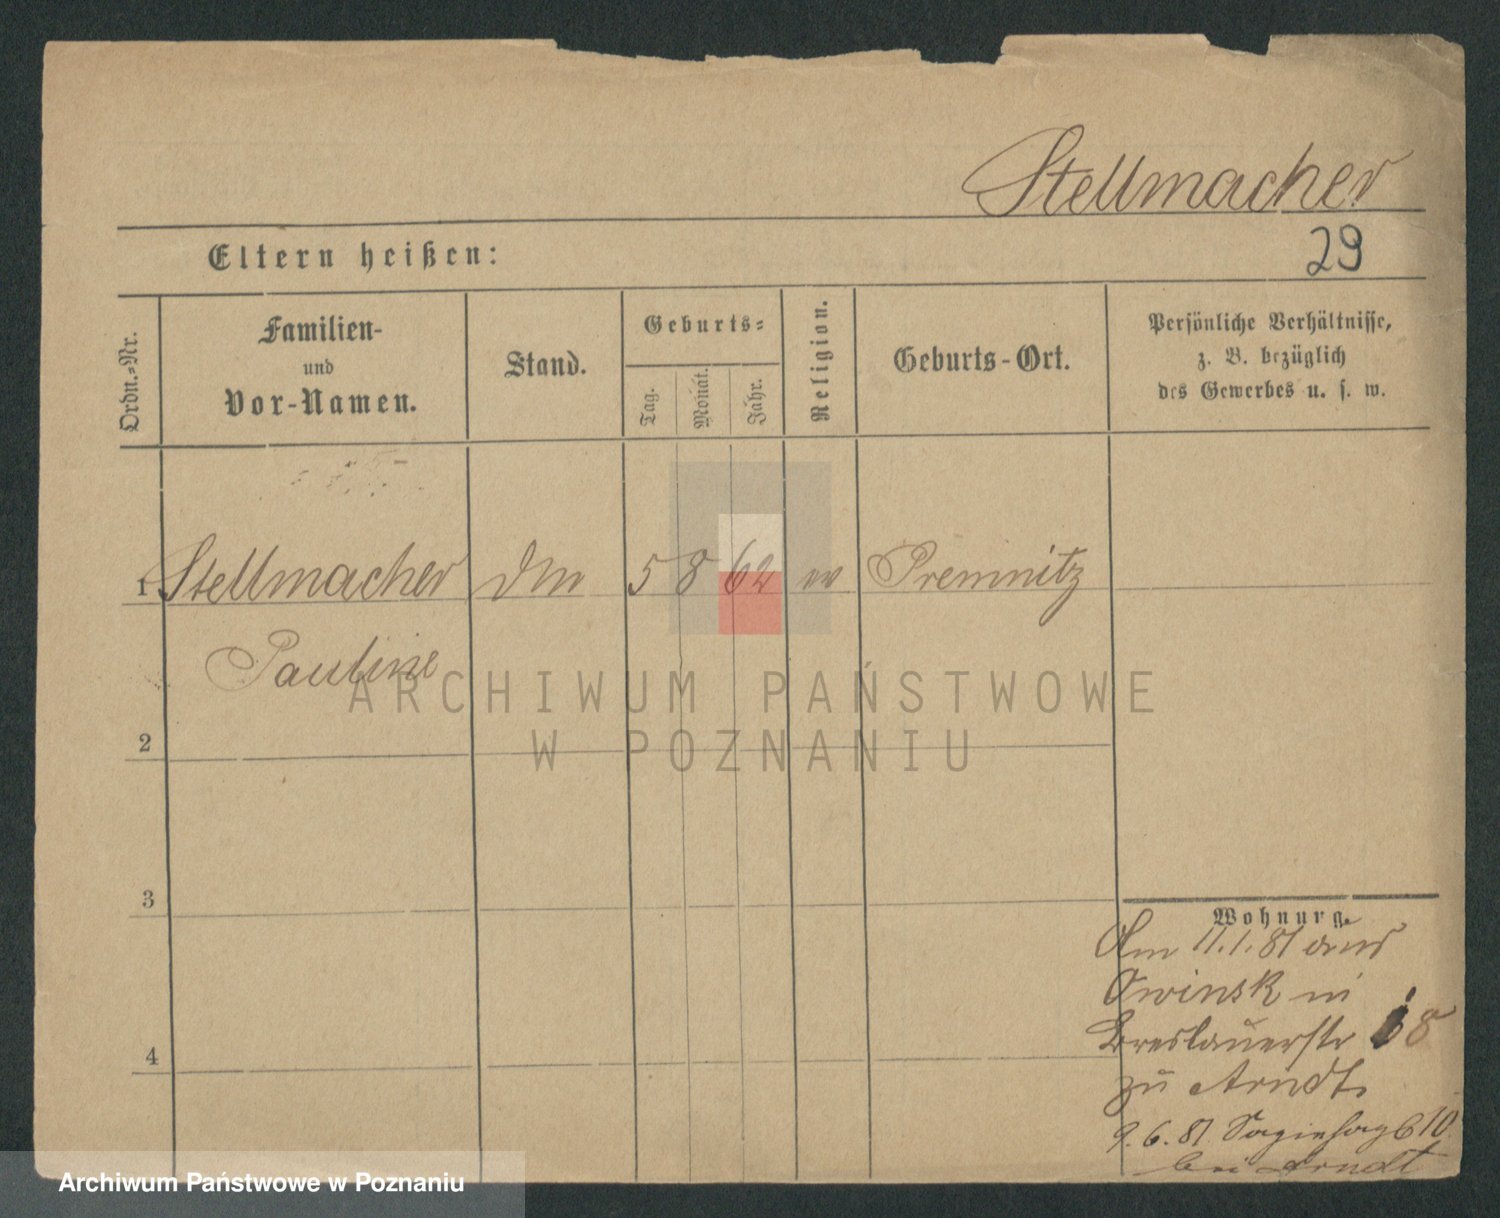 Stellmacher
Eltern heißen:
29
Ordn.-Nr.
Familien-
und
Vor-Namen.
Stand.
Geburts-
Tag.
Monat.
Jahr.
Religion.
Geburts-Ort.
Persönliche Verhältnisse,
z. B. bezüglich
des Gewerbes u. s. w.
1 Stellmacher 5 8 62 ev Premnitz
Pauline
ARCHIWUM PAŃSTWOWE
W POZNANIU
2
3
Wohnung.
Am 11.1.81 aus
Owinsk in
Breslauerstr 18
4
zu Arndt.
9.6.81 10
bei Arndt
Archiwum Państwowe w Poznaniu